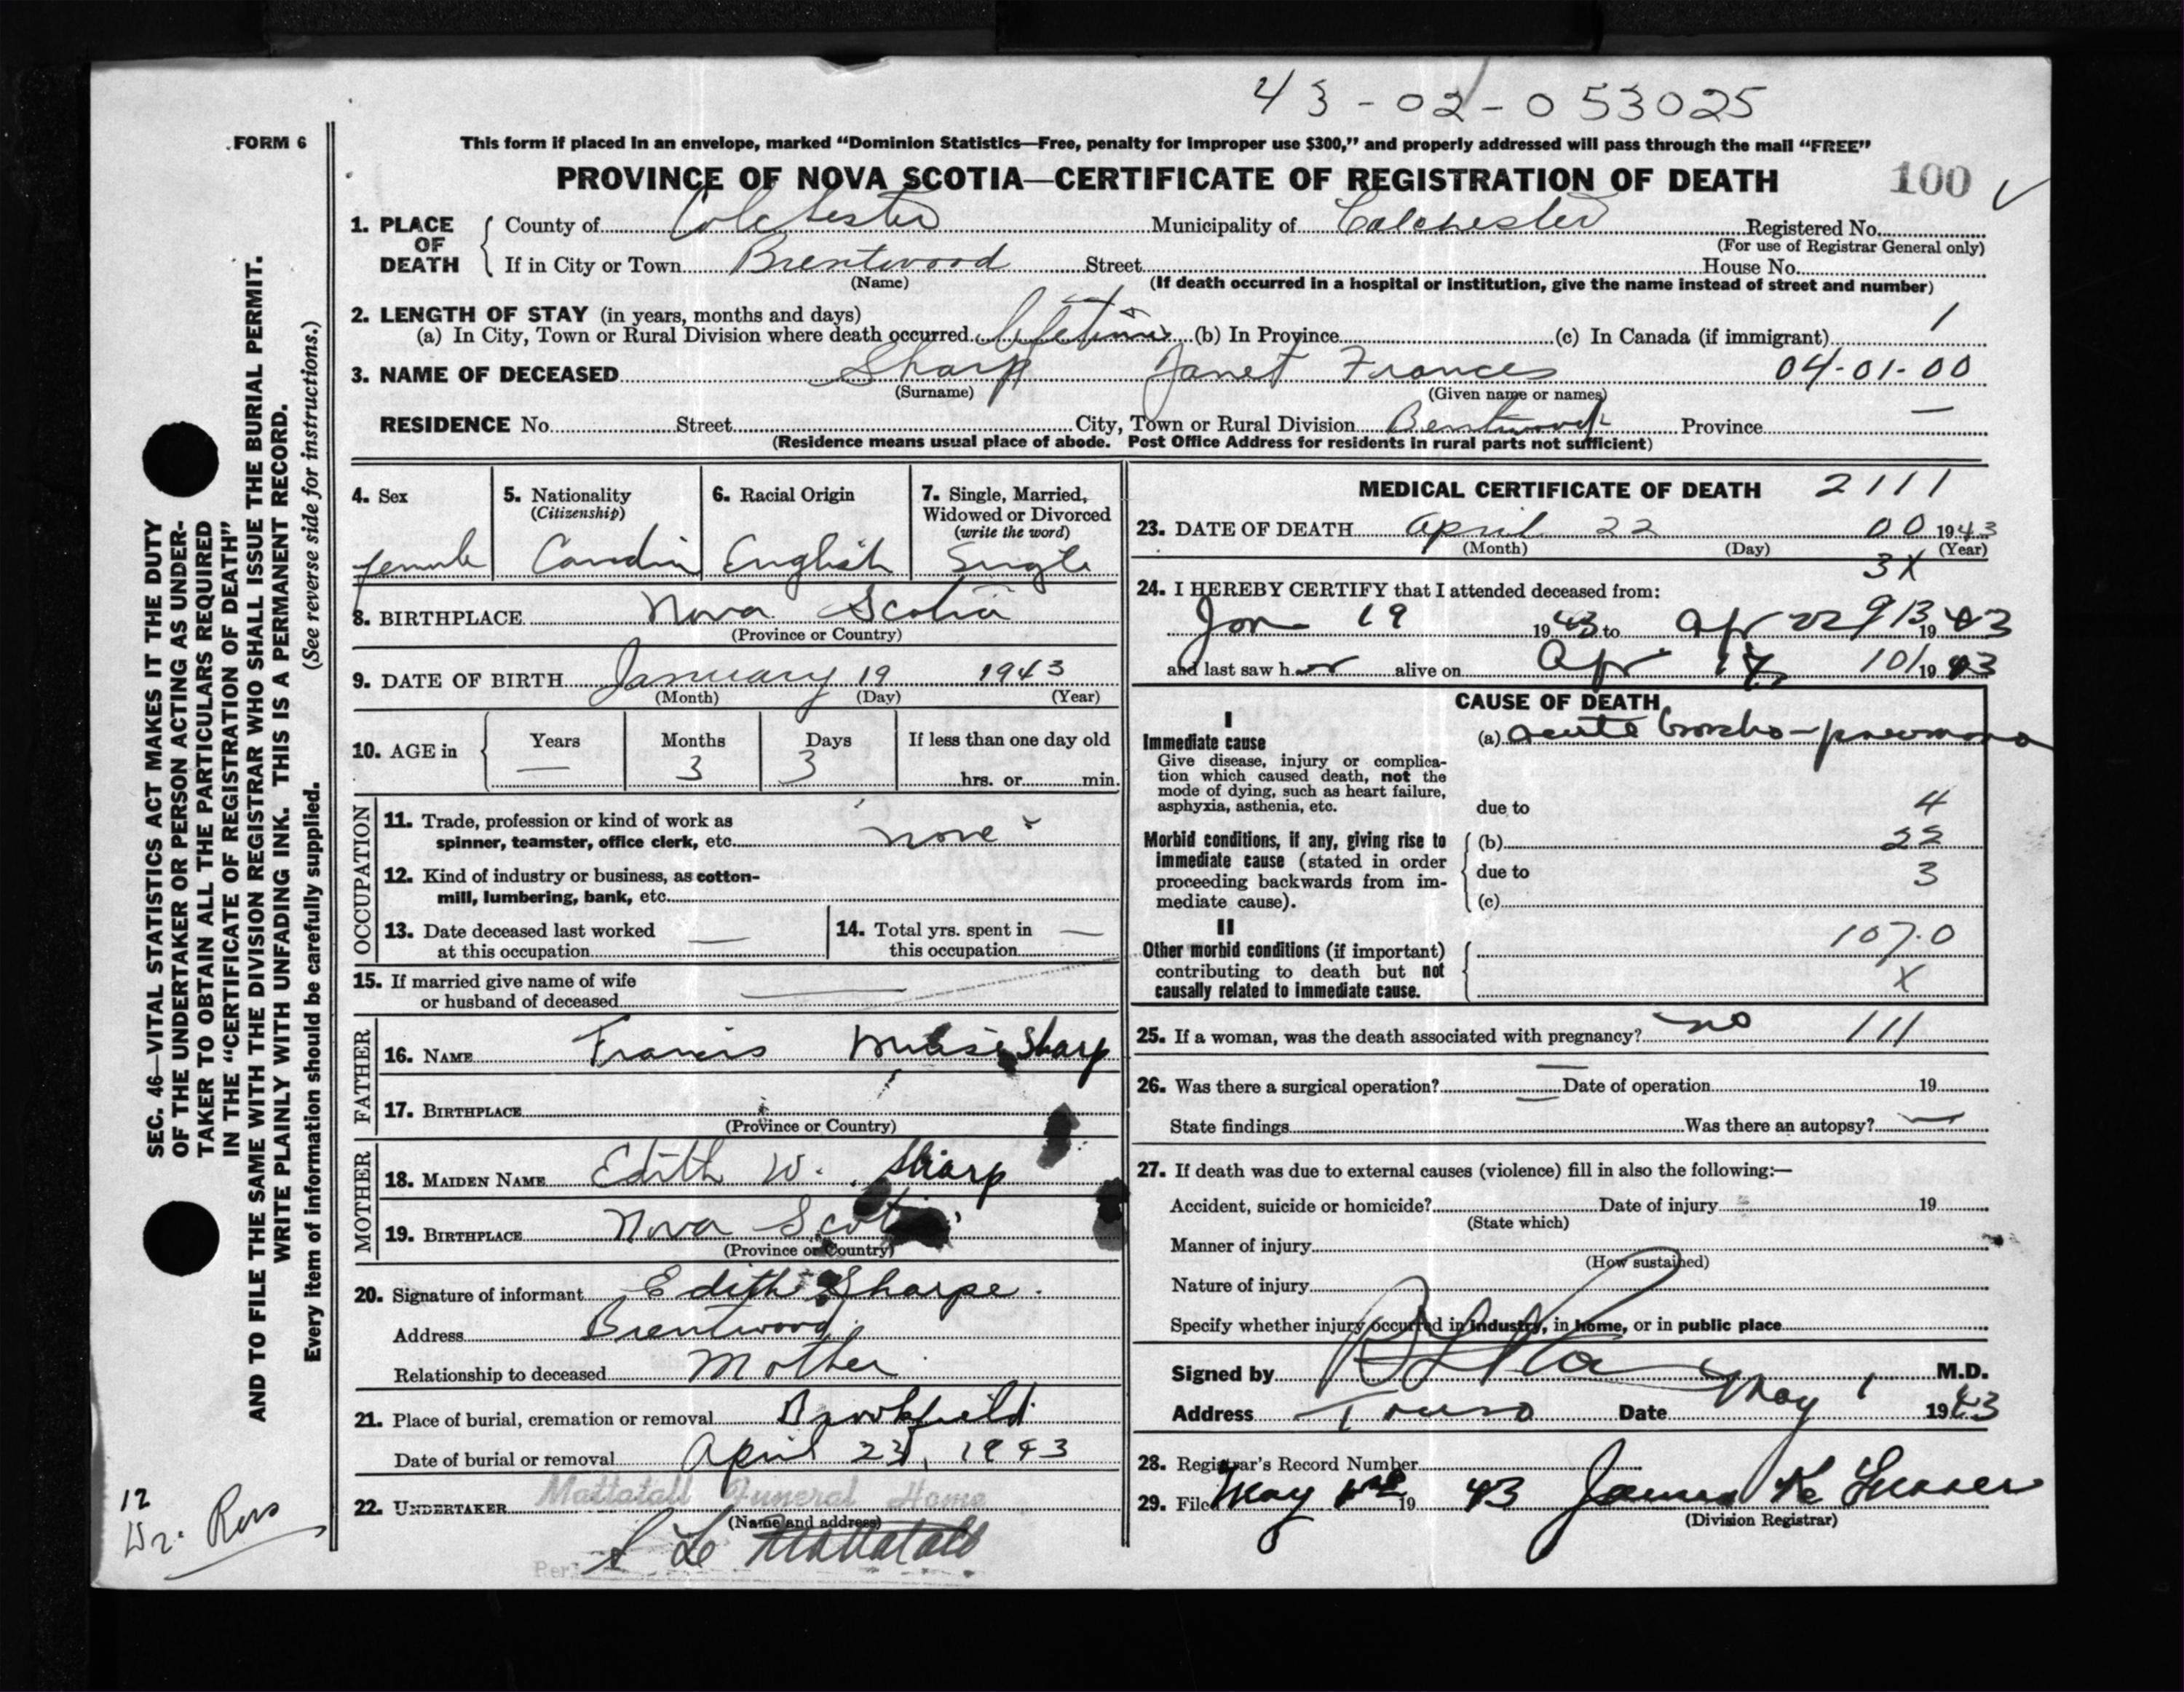 43-02-053025
FORM 6
This form if placed in an envelope, marked "Dominion Statistics—Free, penalty for improper use $300," and properly addressed will pass through the mail "FREE"
PROVINCE OF NOVA SCOTIA—CERTIFICATE OF REGISTRATION OF DEATH 100
1. PLACE OF DEATH County of Colchester Municipality of Colchester Registered No.
(For use of Registrar General only)
If in City or Town Brentwood Street House No.
(Name) (If death occurred in a hospital or institution, give the name instead of street and number)
2. LENGTH OF STAY (in years, months and days) 1
(a) In City, Town or Rural Division where death occurred lifetime (b) In Province (c) In Canada (if immigrant)
3. NAME OF DECEASED Sharp Janet Frances 04-01-00
(Surname) (Given name or names)
RESIDENCE No. Street City, Town or Rural Division Brentwood Province —
(Residence means usual place of abode. Post Office Address for residents in rural parts not sufficient)
4. Sex
female
5. Nationality
(Citizenship)
6. Racial Origin
English
7. Single, Married, Widowed or Divorced
(write the word)
Single
8. BIRTHPLACE Nova Scotia
(Province or Country)
9. DATE OF BIRTH January 19 1943
(Month) (Day) (Year)
10. AGE in Years — Months 3 Days 3 If less than one day old
hrs. or min.
OCCUPATION
11. Trade, profession or kind of work as
spinner, teamster, office clerk, etc. none
12. Kind of industry or business, as cotton-
mill, lumbering, bank, etc.
13. Date deceased last worked
at this occupation —
14. Total yrs. spent in
this occupation —
15. If married give name of wife
or husband of deceased —
FATHER
16. NAME Francis Sharp
17. BIRTHPLACE
(Province or Country)
MOTHER
18. MAIDEN NAME Edith W. Sharp
19. BIRTHPLACE Nova Scotia
(Province or Country)
20. Signature of informant Edith Sharpe.
Address Brentwood
Relationship to deceased Mother
21. Place of burial, cremation or removal Brookfield
Date of burial or removal April 23, 1943
22. UNDERTAKER Mattatall Funeral Home
(Name and address)
Per Mattatall
MEDICAL CERTIFICATE OF DEATH 2111
23. DATE OF DEATH April 22 00 1943
(Month) (Day) (Year)
3X
24. I HEREBY CERTIFY that I attended deceased from:
Jan 19 1943 to Apr 22 913 1943
and last saw her alive on Apr 17, 101 1943
CAUSE OF DEATH
I
Immediate cause
Give disease, injury or complica-
tion which caused death, not the
mode of dying, such as heart failure,
asphyxia, asthenia, etc.
(a) acute broncho-pneumonia
due to 4
Morbid conditions, if any, giving rise to
immediate cause (stated in order
proceeding backwards from im-
mediate cause).
(b) 22
due to 3
(c)
II
Other morbid conditions (if important)
contributing to death but not
causally related to immediate cause.
107.0
X
25. If a woman, was the death associated with pregnancy? no 111
26. Was there a surgical operation? — Date of operation 19
State findings Was there an autopsy? —
27. If death was due to external causes (violence) fill in also the following:—
Accident, suicide or homicide? Date of injury 19
(State which)
Manner of injury
(How sustained)
Nature of injury
Specify whether injury occurred in industry, in home, or in public place
Signed by M.D.
Address Truro Date May 1 1943
28. Registrar's Record Number
29. Filed May 1943 James K
(Division Registrar)
SEC. 46—VITAL STATISTICS ACT MAKES IT THE DUTY
OF THE UNDERTAKER OR PERSON ACTING AS UNDER-
TAKER TO OBTAIN ALL THE PARTICULARS REQUIRED
IN THE "CERTIFICATE OF REGISTRATION OF DEATH"
AND TO FILE THE SAME WITH THE DIVISION REGISTRAR WHO SHALL ISSUE THE BURIAL PERMIT.
WRITE PLAINLY WITH UNFADING INK. THIS IS A PERMANENT RECORD.
Every item of information should be carefully supplied. (See reverse side for instructions.)
12
Dr. Ross